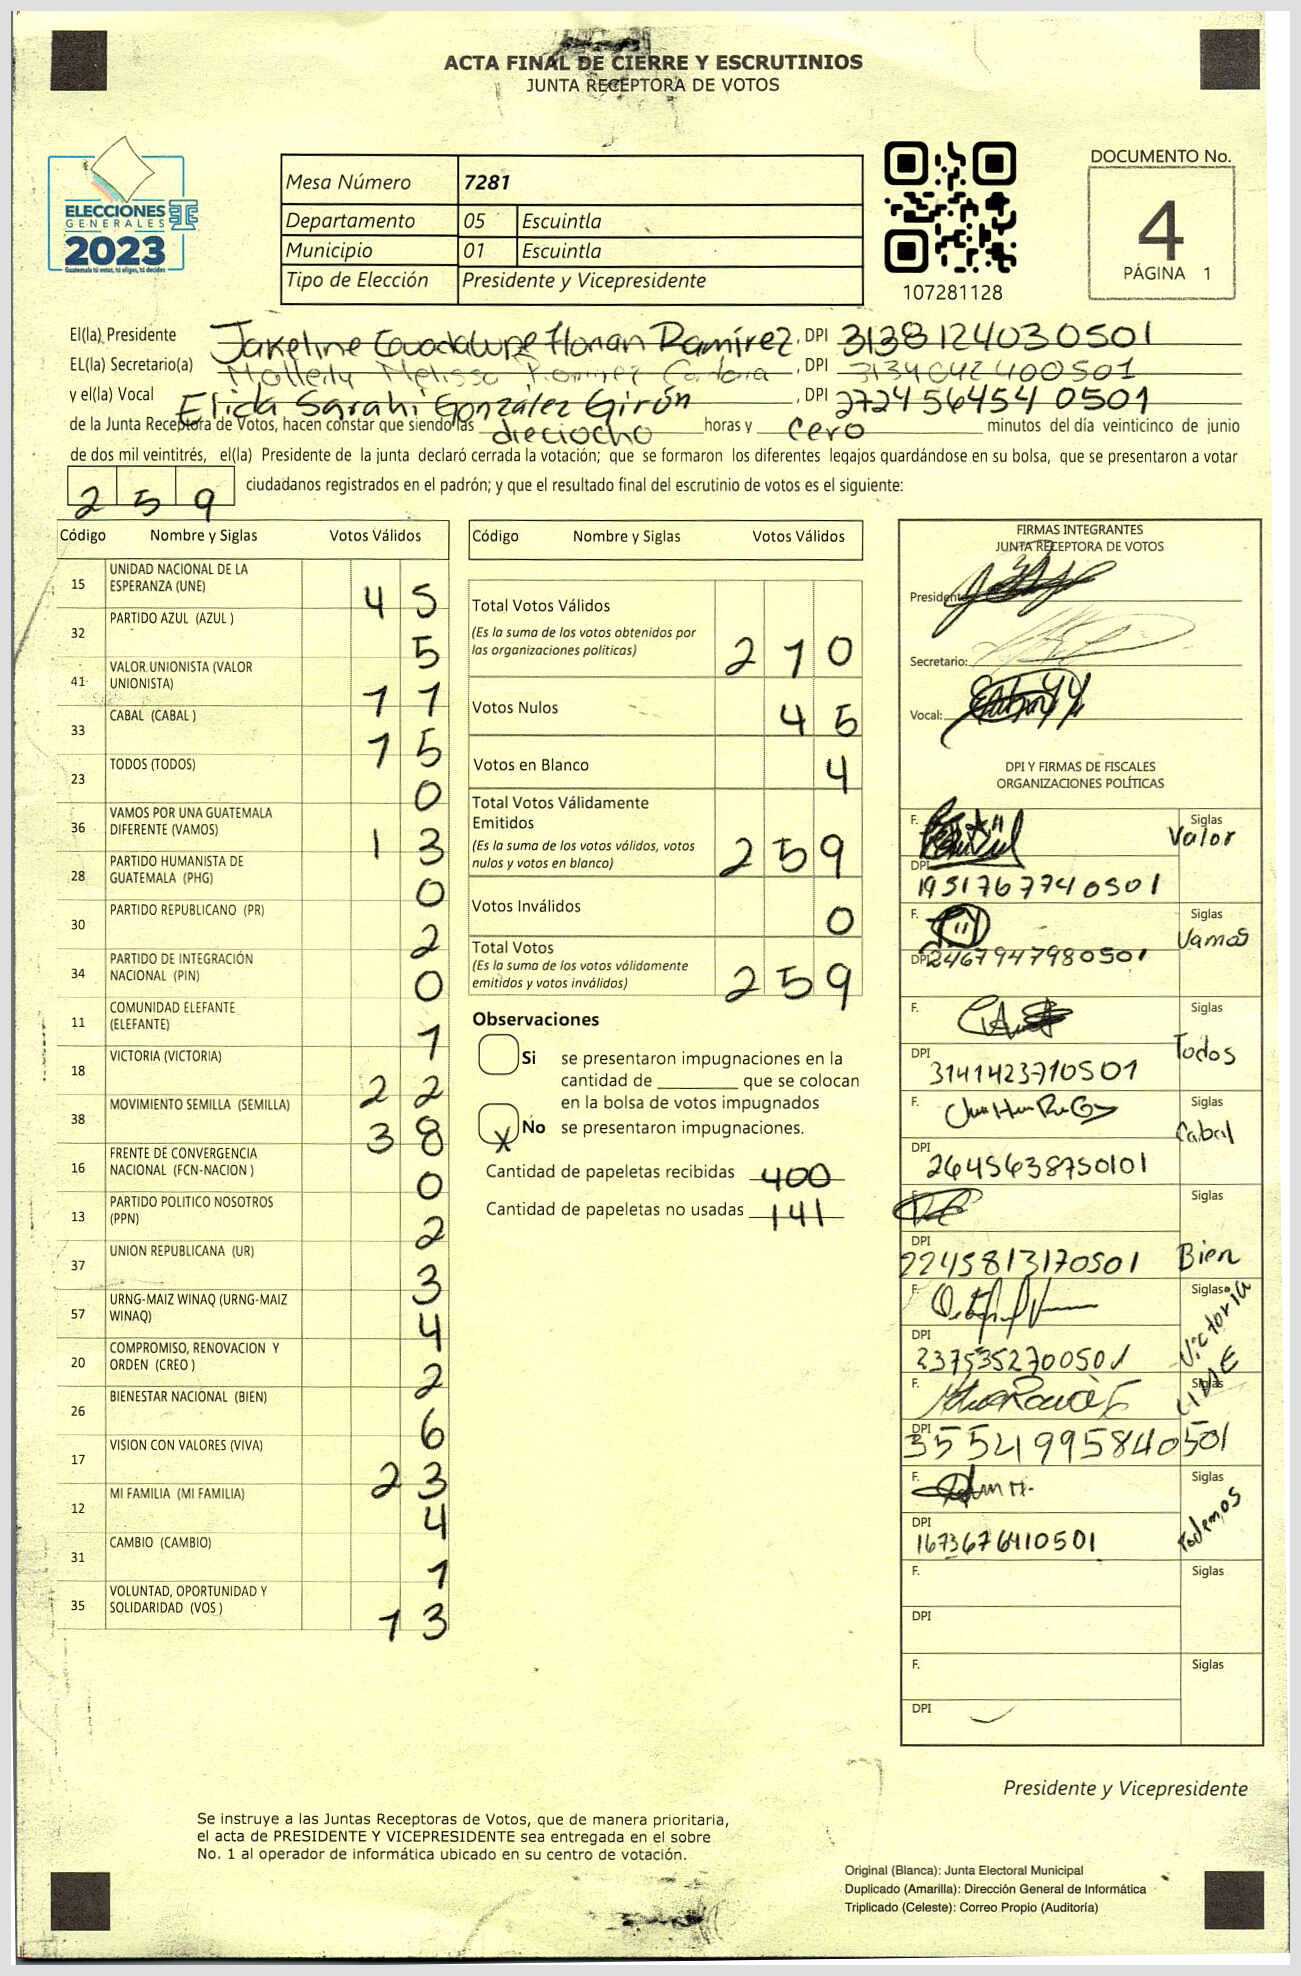 ACTA FINAL DE CIERRE Y ESCRUTINIOS
JUNTA RECEPTORA DE VOTOS
ELECCIONES
GENERALES
2023
Guatemala tú votas, tú eliges, tú decides
Mesa Número 7281
Departamento 05 Escuintla
Municipio 01 Escuintla
Tipo de Elección Presidente y Vicepresidente
107281128
DOCUMENTO No.
4
PÁGINA 1
El(la) Presidente Jakeline Guadalupe Florian Ramírez, DPI 3138124030501
EL(la) Secretario(a) Melissa Ramirez Cardona, DPI 3134042400501
y el(la) Vocal Elida Sarahi González Girón, DPI 2724564540501
de la Junta Receptora de Votos, hacen constar que siendo las dieciocho horas y cero minutos del día veinticinco de junio
de dos mil veintitrés, el(la) Presidente de la junta declaró cerrada la votación; que se formaron los diferentes legajos quardándose en su bolsa, que se presentaron a votar
259 ciudadanos registrados en el padrón; y que el resultado final del escrutinio de votos es el siguiente:
Código Nombre y Siglas Votos Válidos
15 UNIDAD NACIONAL DE LA ESPERANZA (UNE) 45
32 PARTIDO AZUL (AZUL ) 5
41 VALOR UNIONISTA (VALOR UNIONISTA) 11
33 CABAL (CABAL ) 15
23 TODOS (TODOS) 0
36 VAMOS POR UNA GUATEMALA DIFERENTE (VAMOS) 13
28 PARTIDO HUMANISTA DE GUATEMALA (PHG) 0
30 PARTIDO REPUBLICANO (PR) 2
34 PARTIDO DE INTEGRACIÓN NACIONAL (PIN) 0
11 COMUNIDAD ELEFANTE (ELEFANTE) 1
18 VICTORIA (VICTORIA) 22
38 MOVIMIENTO SEMILLA (SEMILLA) 38
16 FRENTE DE CONVERGENCIA NACIONAL (FCN-NACION ) 0
13 PARTIDO POLITICO NOSOTROS (PPN) 2
37 UNION REPUBLICANA (UR) 3
57 URNG-MAIZ WINAQ (URNG-MAIZ WINAQ) 4
20 COMPROMISO, RENOVACION Y ORDEN (CREO ) 2
26 BIENESTAR NACIONAL (BIEN) 6
17 VISION CON VALORES (VIVA) 23
12 MI FAMILIA (MI FAMILIA) 4
31 CAMBIO (CAMBIO) 1
35 VOLUNTAD, OPORTUNIDAD Y SOLIDARIDAD (VOS ) 13
Código Nombre y Siglas Votos Válidos
Total Votos Válidos
(Es la suma de los votos obtenidos por
las organizaciones políticas) 210
Votos Nulos 45
Votos en Blanco 4
Total Votos Válidamente
Emitidos
(Es la suma de los votos válidos, votos
nulos y votos en blanco) 259
Votos Inválidos 0
Total Votos
(Es la suma de los votos válidamente
emitidos y votos inválidos) 259
Observaciones
Si se presentaron impugnaciones en la
cantidad de ________ que se colocan
en la bolsa de votos impugnados
X No se presentaron impugnaciones.
Cantidad de papeletas recibidas 400
Cantidad de papeletas no usadas 141
FIRMAS INTEGRANTES
JUNTA RECEPTORA DE VOTOS
Presidente:
Secretario:
Vocal:
DPI Y FIRMAS DE FISCALES
ORGANIZACIONES POLÍTICAS
F. Siglas Valor
DPI 1951767740501
F. Siglas Vamos
DPI 2467947980501
F. Siglas Todos
DPI 3141423710501
F. Siglas Cabal
DPI 2645638750101
F. Siglas Bien
DPI 2245813170501
F. Siglas Victoria
DPI 2375352700501
F. Siglas UNE
DPI 3554995840501
F. Siglas Todemos
DPI 1673676410501
F. Siglas
DPI
F. Siglas
DPI
Presidente y Vicepresidente
Se instruye a las Juntas Receptoras de Votos, que de manera prioritaria,
el acta de PRESIDENTE Y VICEPRESIDENTE sea entregada en el sobre
No. 1 al operador de informática ubicado en su centro de votación.
Original (Blanca): Junta Electoral Municipal
Duplicado (Amarilla): Dirección General de Informática
Triplicado (Celeste): Correo Propio (Auditoría)